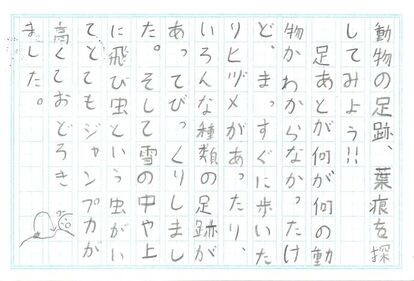 動物の足跡、葉痕を探
してみよう!!
足あとが何が何の動
物かわからなかったけ
ど、まっすぐに歩いた
りヒヅメがあったり、
いろんな種類の足跡が
あってびっくりしまし
た。そして雪の中や上
に飛び虫という虫がい
てとてもジャンプカが
高くておどろき
ました。